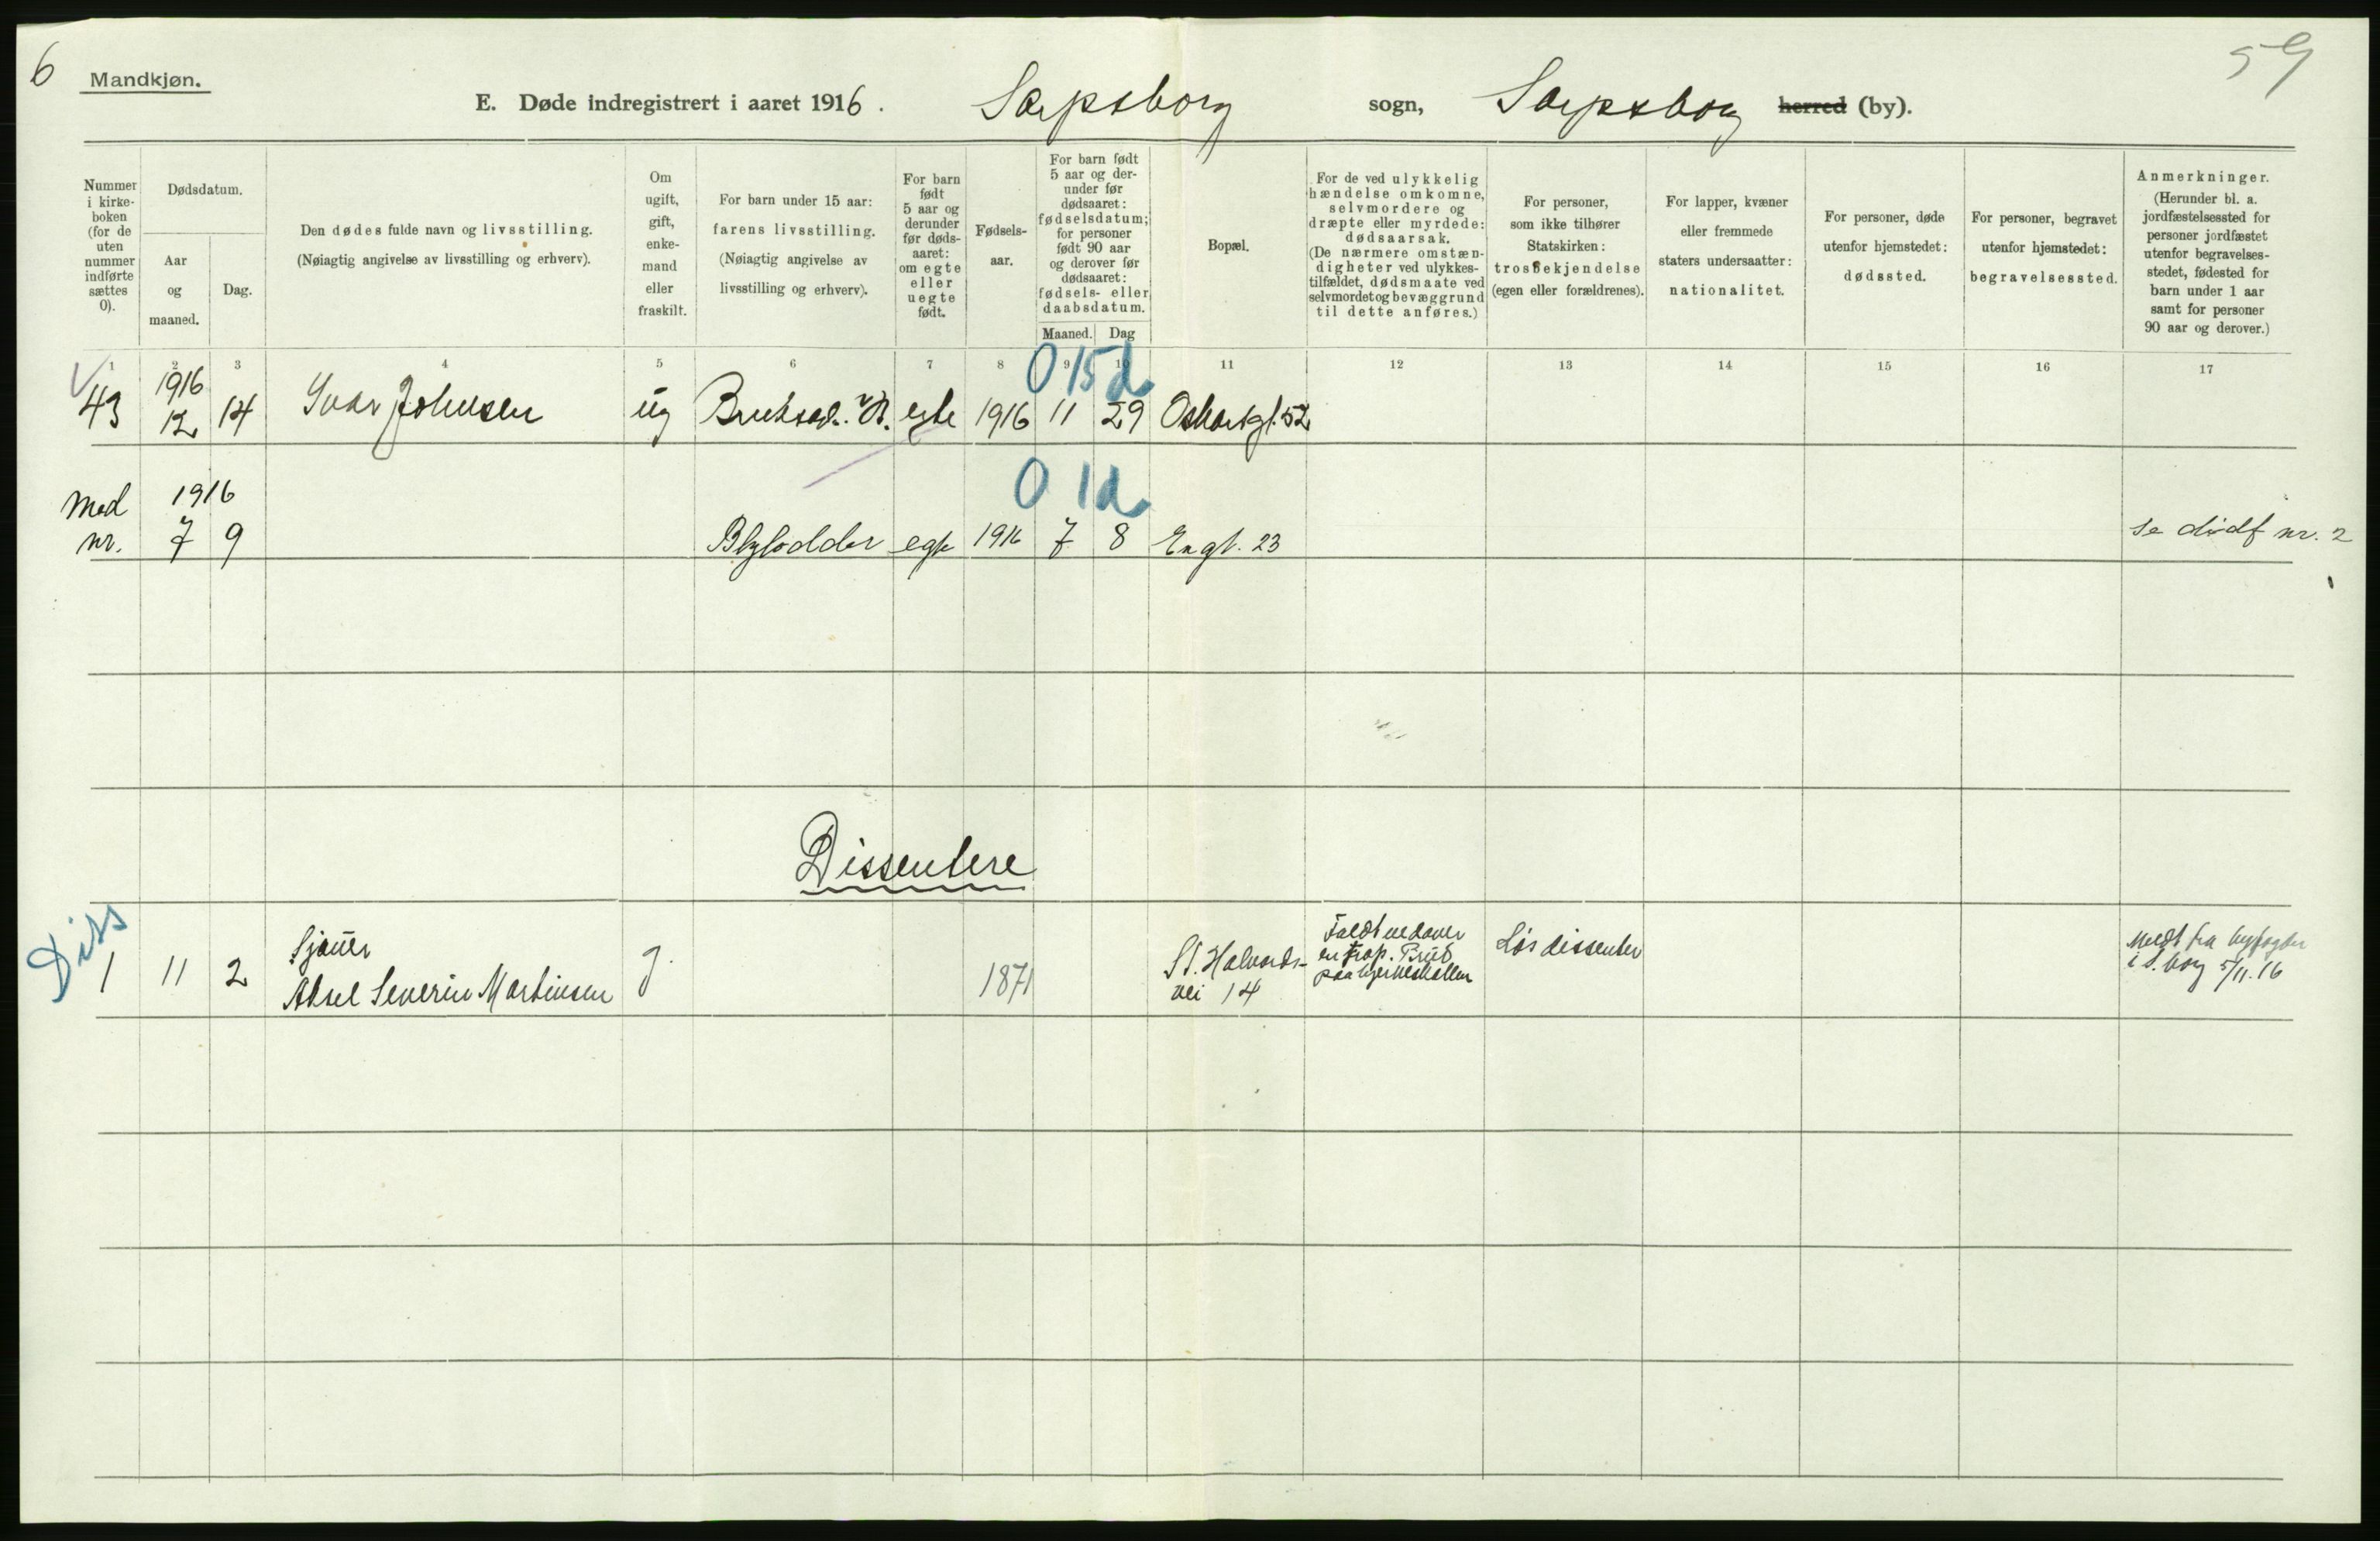 6
Mandkjøn.
59
E. Døde indregistrert i aaret 1916. Sarpsborg sogn, Sarpsborg herred (by).
Nummer
i kirke-
boken
(for de
uten
nummer
indførte
sættes
0).
Dødsdatum.
Aar
og
maaned.
Dag.
Den dødes fulde navn og livsstilling.
(Nøiagtig angivelse av livsstilling og erhverv).
Om
ugift,
gift,
enke-
mand
eller
fraskilt.
For barn under 15 aar:
farens livsstilling.
(Nøiagtig angivelse av
livsstilling og erhverv).
For barn
født
5 aar og
derunder
før døds-
aaret:
om egte
eller
uegte
født.
Fødsels-
aar.
For barn født
5 aar og der-
under før
dødsaaret:
fødselsdatum;
for personer
født 90 aar
og derover før
dødsaaret:
fødsels- eller
daabsdatum.
Maaned. Dag
Bopæl.
For de ved ulykkelig
hændelse omkomne,
selvmordere og
dræpte eller myrdede:
dødsaarsak.
(De nærmere omstæn-
digheter ved ulykkes-
tilfældet, dødsmaate ved
selvmordet og bevæggrund
til dette anføres.)
For personer,
som ikke tilhører
Statskirken:
trosbekjendelse
(egen eller forældrenes).
For lapper, kvæner
eller fremmede
staters undersaatter:
nationalitet.
For personer, døde
utenfor hjemstedet:
dødssted.
For personer, begravet
utenfor hjemstedet:
begravelsessted.
Anmerkninger.
(Herunder bl. a.
jordfæstelsessted for
personer jordfæstet
utenfor begravelses-
stedet, fødested for
barn under 1 aar
samt for personer
90 aar og derover.)
1 2 3 4 5 6 7 8 9 10 11 12 13 14 15 16 17
0 15 d
1916
43 12 14 Ivar Johnsen ug egte 1916 11 29 Oskarsgt. 52
0 1 d
Med 1916
nr. 7 9 Blylodder egte 1916 7 8 Engt. 23 se dødf nr. 2
Dissentere
Diss
1 11 2 Sjauer
Aksel Severin Martinsen g. 1871
St. Halvards-
vei 14
Faldt
paa
Løs dissenter
Meldt fra byfogden
i S.borg 5/11.16